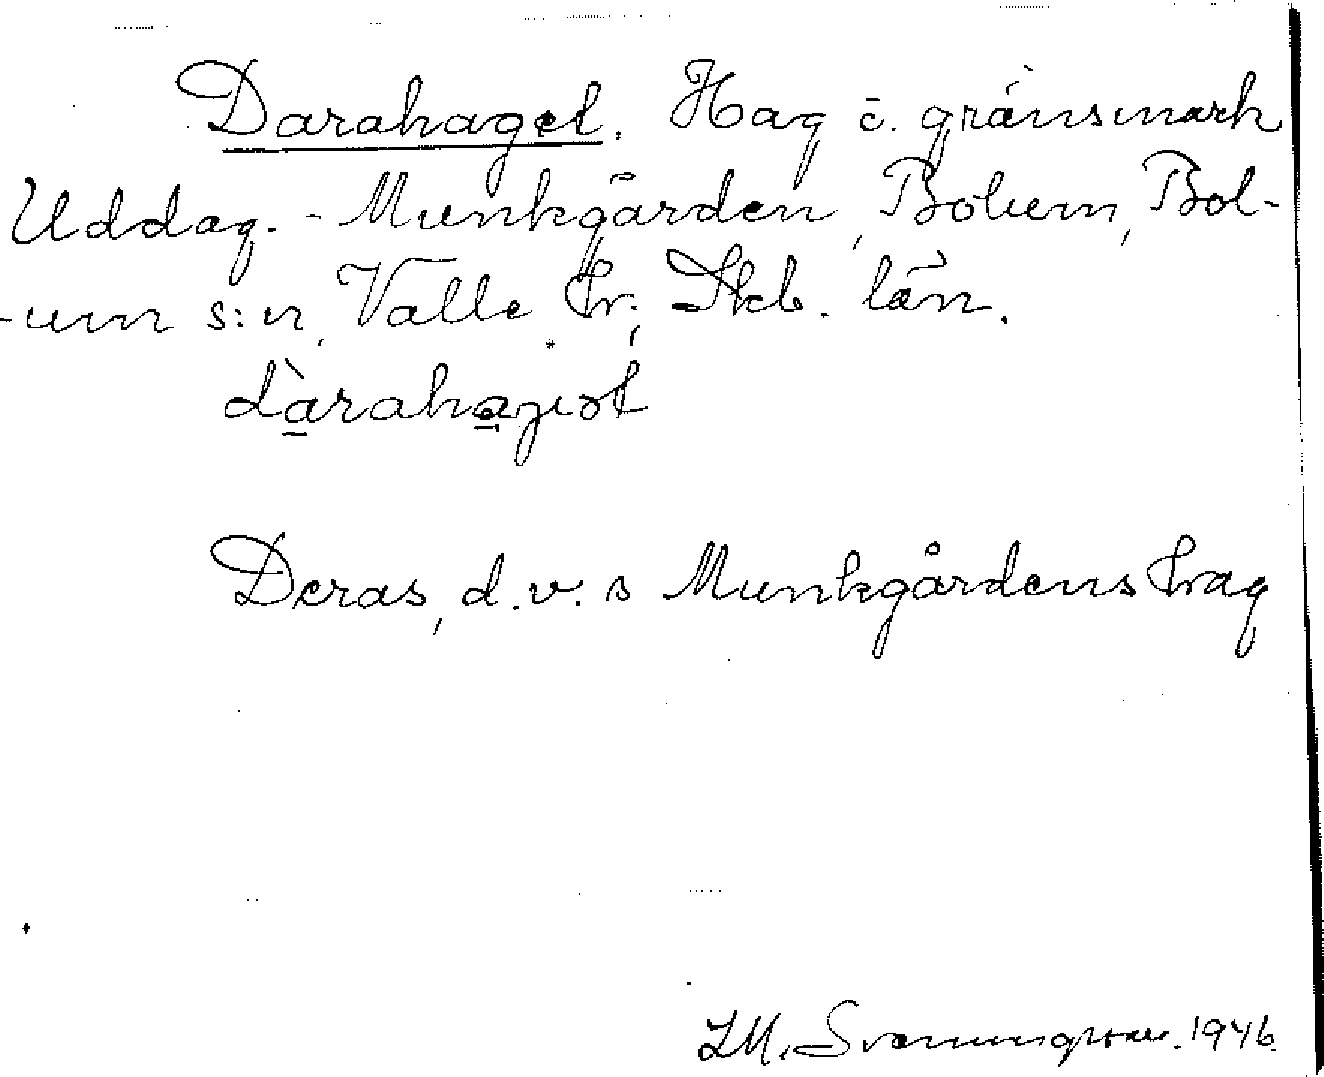 Darahaget. Hag i gränsmark
Uddag. - Munkgården, Bolum, Bol-
-um s:n, Valle hr., Skb. län.
dàrahaʒət
Deras, d.v.s Munkgårdens hag
Svenungsson. 1946